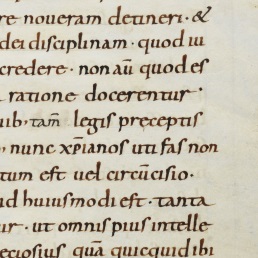 re noueram detineri · &
dei disciplinam · quod ui
credere · non aū quod es
a ratione docerentur ·
uib, tam̄ legis preceptis
, nunc xp̄ianos uti fas non
tum est uel circūcisio ·
id huiusmodi est · tanta
ur · ut omnis pius intelle
eciosius quā quicquid ibi